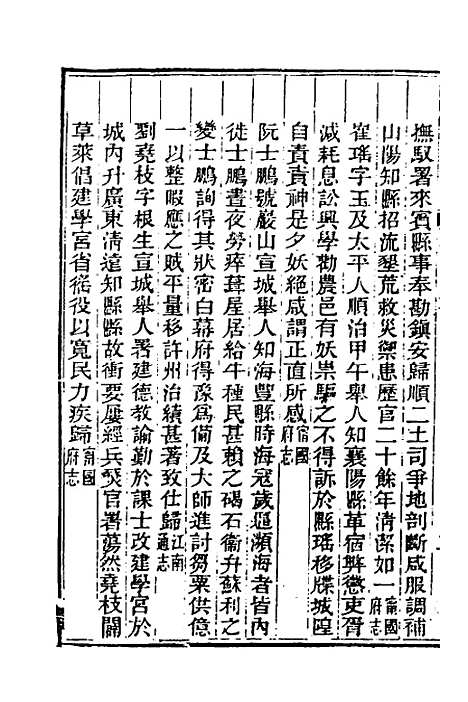 撫馭署來賓縣事奉勘鎮安歸順二土司爭地剖斷咸服調補
山陽知縣招流墾荒救災禦患歷官二十餘年清潔如一甯國府志
崔瑤字玉及太平人順治甲午舉人知襄陽縣革宿弊懲吏胥
減耗息訟興學勸農邑有妖祟驅之不得訴於縣瑤移牒城隍
自責責神是夕妖絕咸謂正直所感甯國府志
阮士鵬號巖山宣城舉人知海豐縣時海寇歲逼瀕海者皆內
徙士鵬晝夜勞瘁葺屋居給牛種民甚賴之碣石衞升蘇利之
變士鵬詗得其狀密白幕府得豫為備及大師進討芻粟供億
一以整暇應之賊平量移許州治績甚著致仕歸江南通志
劉堯枝字根生宣城舉人署建德教諭勤於課士改建學宮於
城內升廣東清遠知縣縣故衝要屢經兵燹官署蕩然堯枝闢
草萊倡建學宮省徭役以寬民力疾歸甯國府志